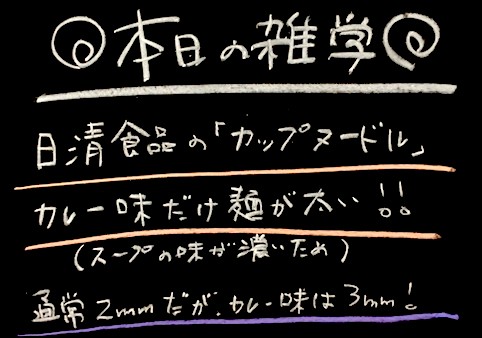 本日の雑学
日清食品の「カップヌードル」
カレー味だけ麺が太い!!
(スープの味が濃いため)
通常2mmだが、カレー味は3mm!